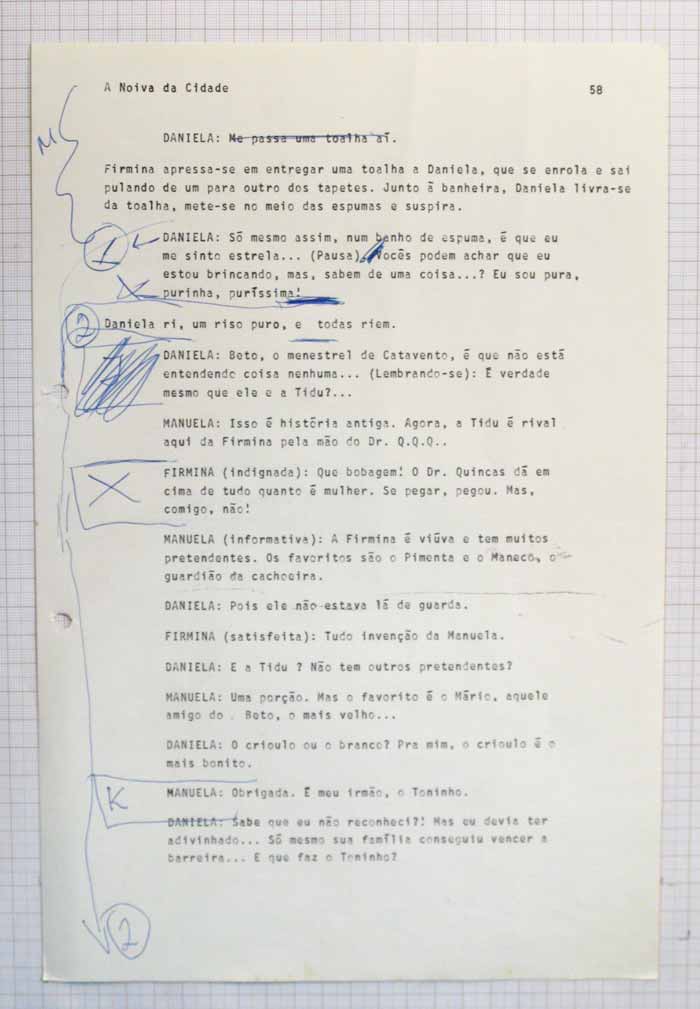 A Noiva da Cidade 58
DANIELA: Me passa uma toalha aí.
Firmina apressa-se em entregar uma toalha a Daniela, que se enrola e sai
pulando de um para outro dos tapetes. Junto à banheira, Daniela livra-se
da toalha, mete-se no meio das espumas e suspira.
1
DANIELA: Só mesmo assim, num banho de espuma, é que eu
me sinto estrela... (Pausa). Vocês podem achar que eu
estou brincando, mas, sabem de uma coisa...? Eu sou pura,
X purinha, puríssima!
2 Daniela ri, um riso puro, e todas riem.
DANIELA: Beto, o menestrel de Catavento, é que não está
entendendo coisa nenhuma... (Lembrando-se): É verdade
mesmo que ele e a Tidu?...
MANUELA: Isso é história antiga. Agora, a Tidu é rival
aqui da Firmina pela mão do Dr. Q.Q.Q..
FIRMINA (indignada): Que bobagem! O Dr. Quincas dá em
X cima de tudo quanto é mulher. Se pegar, pegou. Mas,
comigo, não!
MANUELA (informativa): A Firmina é viúva e tem muitos
pretendentes. Os favoritos são o Pimenta e o Maneco, o
guardião da cachoeira.
DANIELA: Pois ele não estava lá de guarda.
FIRMINA (satisfeita): Tudo invenção da Manuela.
DANIELA: E a Tidu ? Não tem outros pretendentes?
MANUELA: Uma porção. Mas o favorito é o Mário, aquele
amigo do . Beto, o mais velho...
DANIELA: O crioulo ou o branco? Pra mim, o crioulo é o
mais bonito.
K MANUELA: Obrigada. É meu irmão, o Toninho.
DANIELA: Sabe que eu não reconheci?! Mas eu devia ter
adivinhado... Só mesmo sua família conseguiu vencer a
barreira... E que faz o Toninho?
2